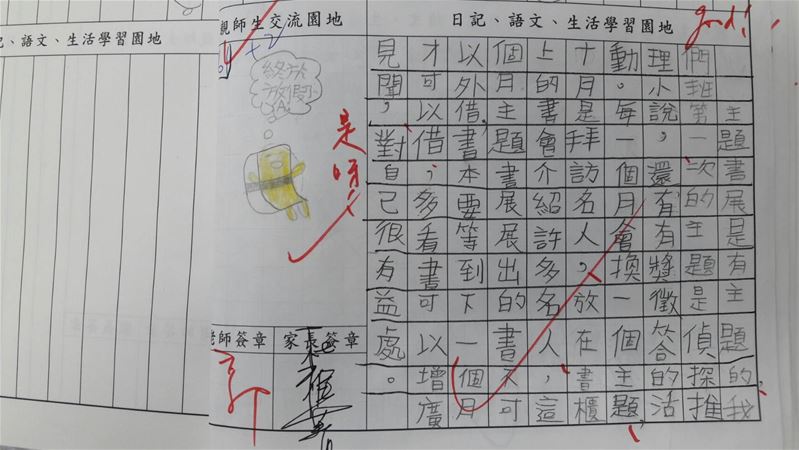 日記、語文、生活學習園地
good!
主題書展是有主題的,我
們班第一次的主題是偵探推
理小說,還有有獎徵答的活
動。每一個月會換一個主題,
十月是拜訪名人,放在書櫃
上的書會介紹許多名人,這
個月主題書展展出的書不可
以外借,書本要等到下一個月
才可以借;多看書可以增廣
見聞,對自己很有益處。
親師生交流園地
終於
放假
是呀
家長簽章
老師簽章
記、語文、生活學習園地